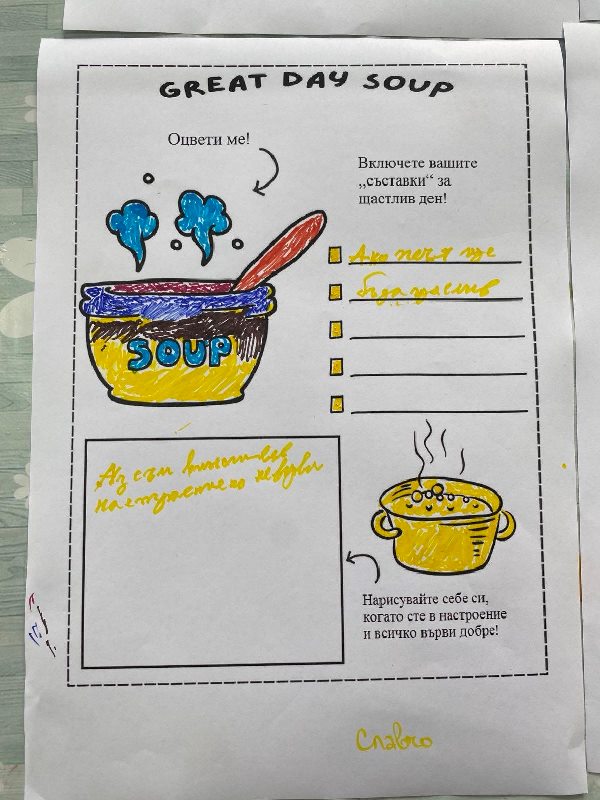 GREAT DAY SOUP
Оцвети ме!
Включете вашите
„съставки“ за
щастлив ден!
Ако печя ще
бъда щаслив
SOUP
Аз съм
Нарисувайте себе си,
когато сте в настроение
и всичко върви добре!
Славчо